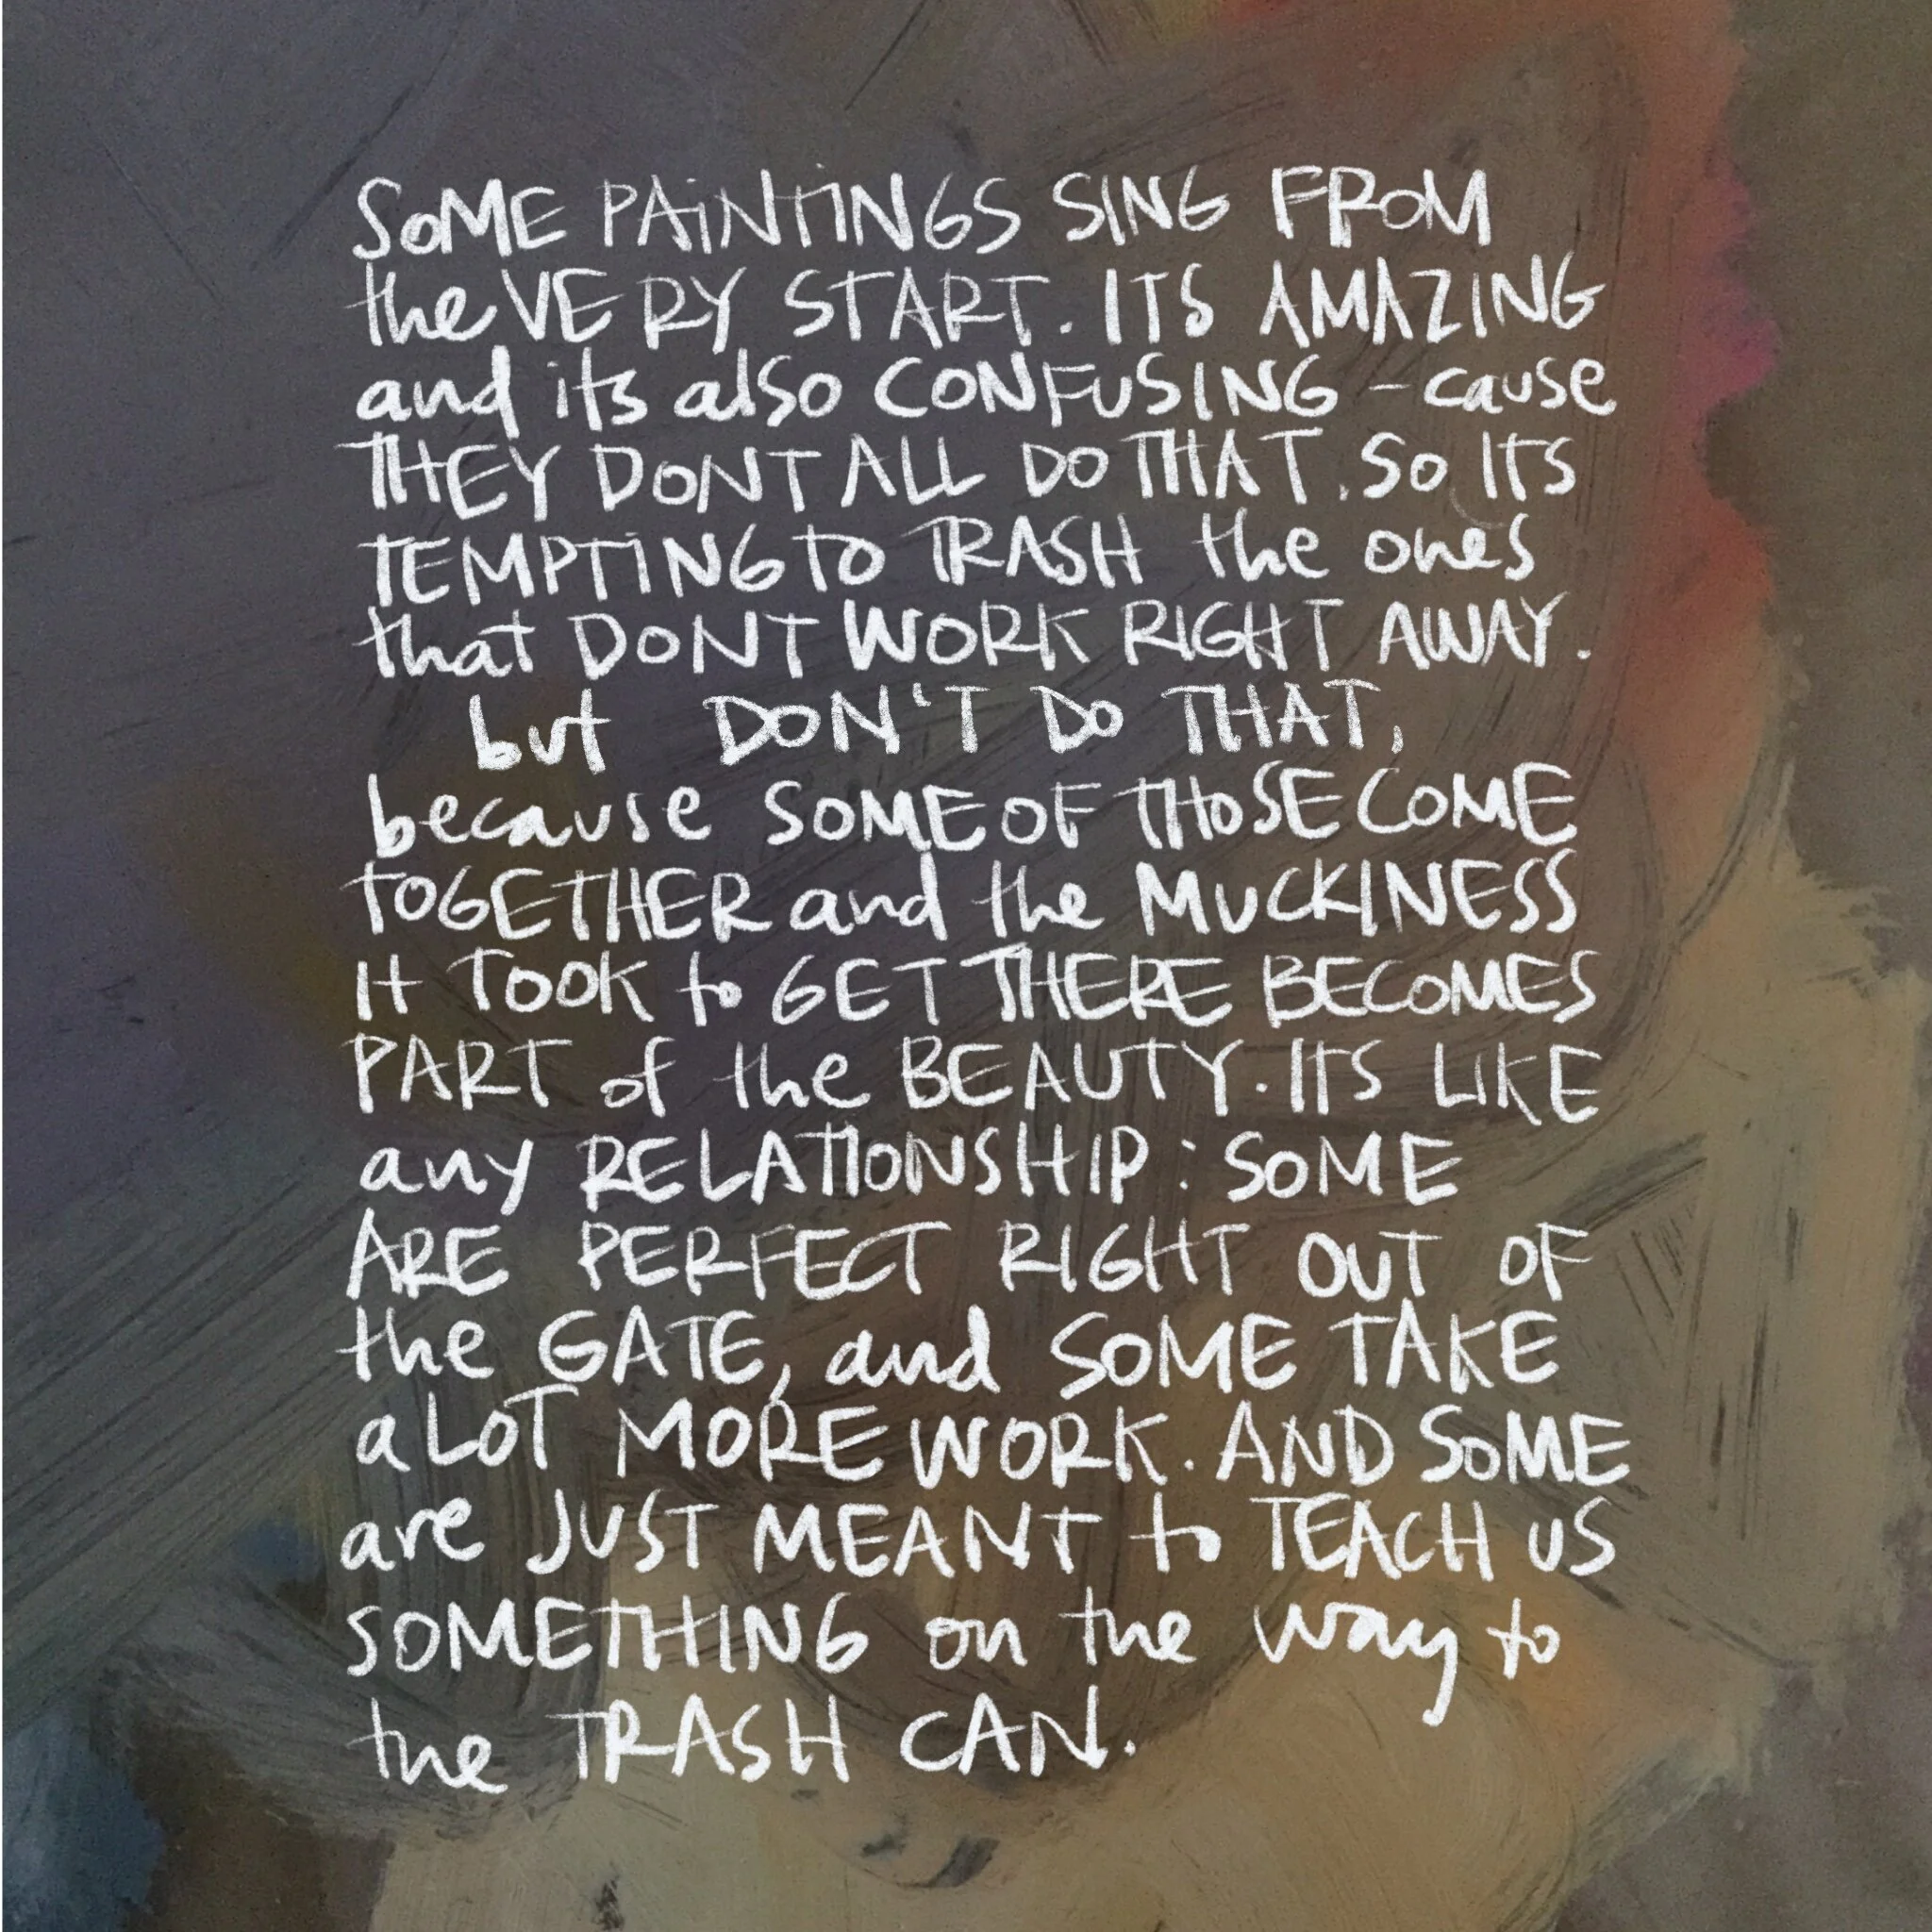 SOME PAINTINGS SING FROM
the VERY START. ITS AMAZING
and its also CONFUSING - cause
THEY DONT ALL DO THAT. SO ITS
TEMPTING to TRASH the ones
that DONT WORK RIGHT AWAY.
but DON'T DO THAT,
because SOME OF THOSE COME
TOGETHER and the MUCKINESS
It TOOK to GET THERE BECOMES
PART of the BEAUTY. ITS LIKE
any RELATIONSHIP: SOME
ARE PERFECT RIGHT OUT OF
the GATE, and SOME TAKE
a LOT MORE WORK. AND SOME
are JUST MEANT to TEACH US
SOMETHING on the way to
the TRASH CAN.